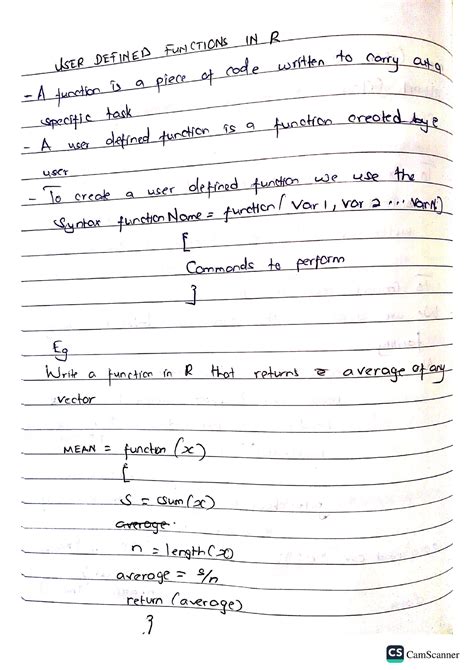 USER DEFINED FUNCTIONS IN R
- A function is a piece of code written to carry out a
specific task
- A user defined function is a function created by e
user
- To create a user defined function we use the
Syntax functionName = function ( Var 1, Var 2 ... VarN)
{
Commands to perform
}
Eg
Write a function in R that returns average of any
vector
MEAN = function (x)
{
S = csum (x)
average.
n = length (x)
average = s/n
return (average)
}
CS CamScanner